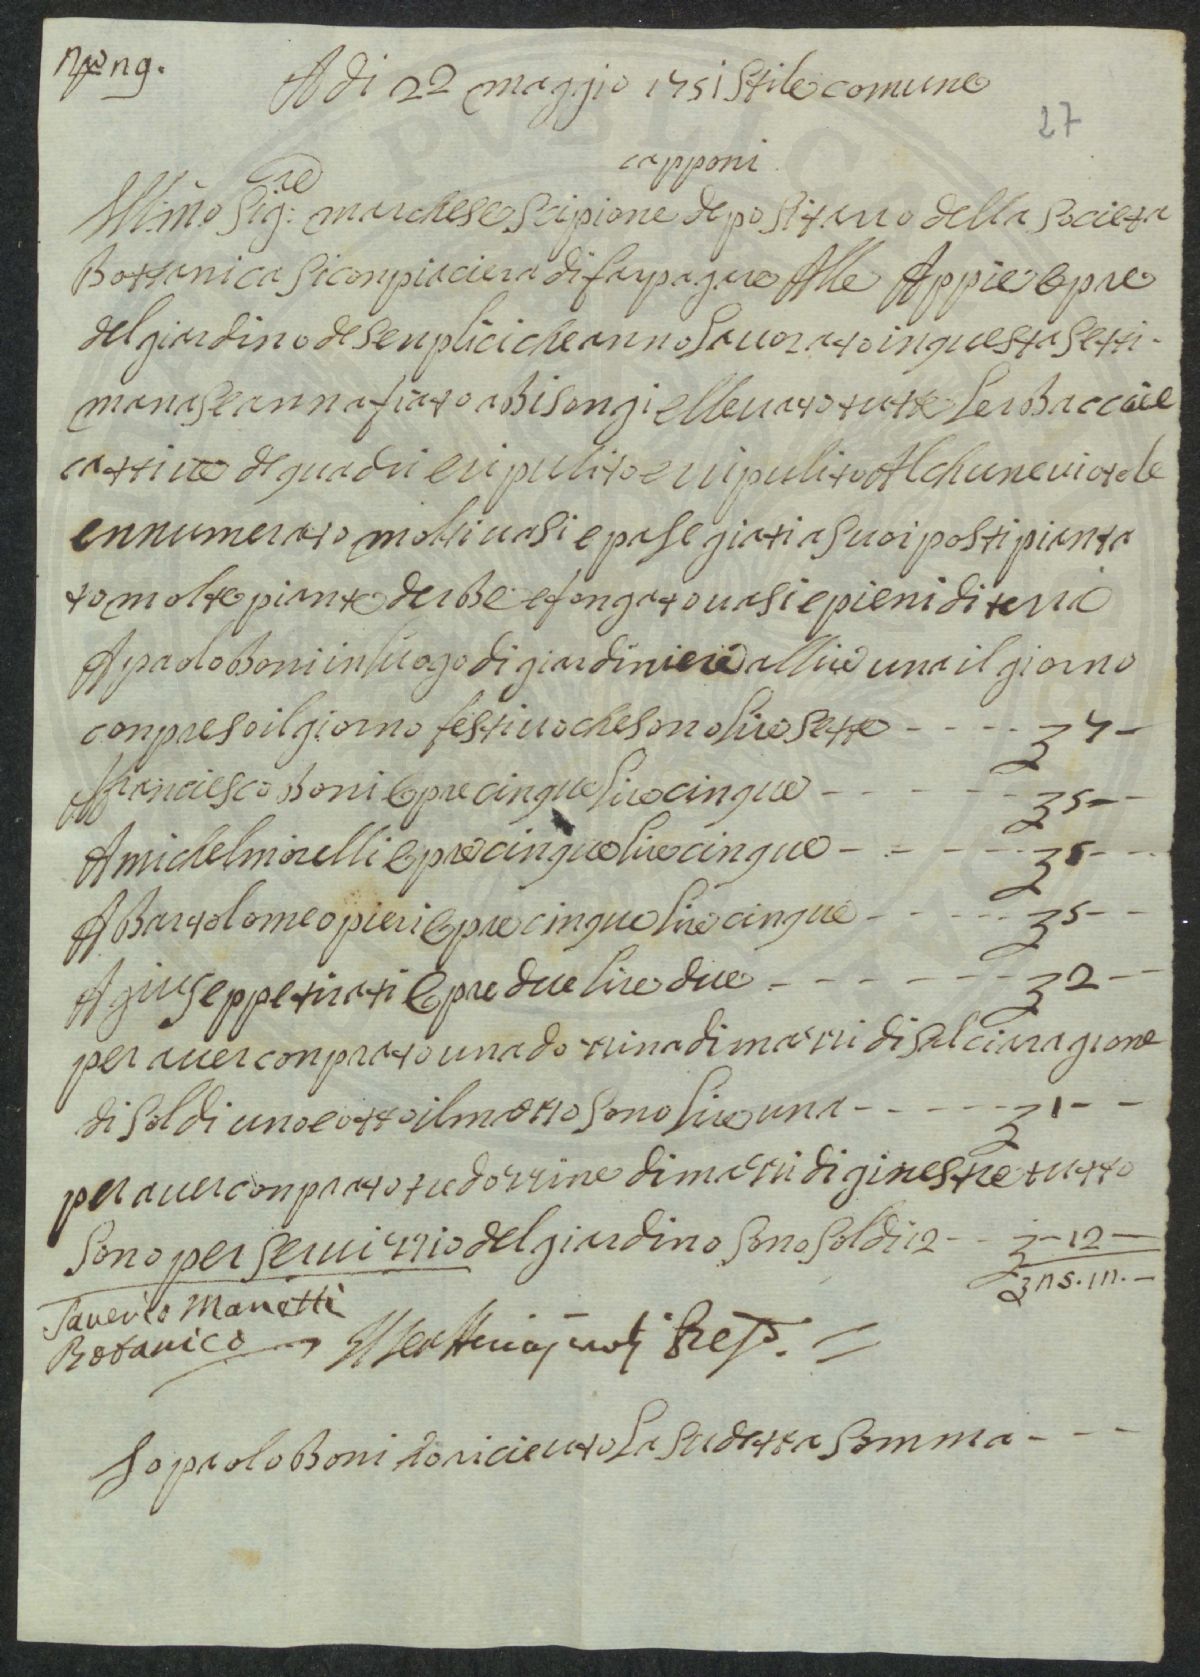 A di 22 maggio 1751 Stile comune
27
capponi
Ill:mo Sig:re marchese Scipione depositario della Societa
Bottanica Siconpiaciera difarpagare Alle Appie Opre
delgiardino desenplici cheanno Lavorato inquesta Setti-
mana seannafiato abisongi ellevato tutte LerBaccie
cattive dequadri eripulito eripulito Alchune viotole
ennumerato molti vasi epasegiati asuoi posti pianta
to molte piante derbe efongato vasi epieni di terra
Apaolo Boni inluogo di giardiniere allire una il giorno
conpreso il giorno festivo che sono Lire Sette - - - - £ 7 -
Afranciesco Boni Opre cinque Lire cinque - - - - - £ 5 - -
Amichel morelli Opre cinque Lire cinque - - - - - £ 5 - - -
ABartolomeo pieri Opre cinque Lire cinque - - - - - £ 5 - -
Agiuseppe tirati Opre due Lire due - - - - - £ 2 - -
per aver conprato una dozzina di mazzi di Salci a ragione
di Soldi uno e otto il mazzo Sono Lire una - - - - - £ 1 - -
per aver conprato tre dozzine di mazzi di ginestre tutto
Sono per Servizzio del giardino Sono Soldi 12 - - £ - 12 -
Saverio Manetti
Botanico
Io paolo Boni ho ricievuto La Sudetta Somma - - -